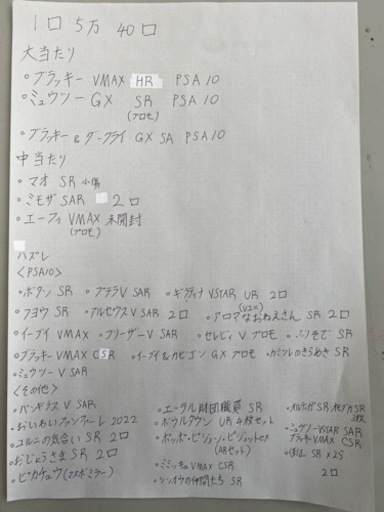 1口 5万 40口
大当たり
○ブラッキー VMAX HR PSA10
○ミュウツー GX SR PSA10
(プロモ)
○ブラッキー&ダークライ GX SA PSA10
中当たり
○マオ SR 小傷
○ミモザ SAR 2口
○エーフィ VMAX 未開封
(プロモ)
ハズレ
<PSA10>
○ボタン SR ○プテラV SAR ○ギラティナ VSTAR UR 2口
○フヨウ SR ○アルセウスV SAR 2口 ○アロマなおねえさん SR 2口
○イーブイ VMAX ○フリーザーV SAR ○セレビィV プロモ ○ふりそで SR
○ブラッキー VMAX CSR ○イーブイ&カビゴン GX プロモ ○カミツレのきらめき SR
○ミュウツーV SAR
<その他>
○バンギラスV SAR ○エーテル財団職員 SR
○おいわいファンファーレ 2022 ○ボウルタウン UR 4枚セット
○ユルニの気合い SR 2口 ○ポッポ・ピジョン・ピジョットex
(ARセット)
○おじょうさま SR 2口 ○ミミッキュ VMAX CSR
○ピカチュウ(マスボミラー) ○シンオウの仲間たち SR
3枚
○ミュウツー VSTAR SAR
ブラッキー VMAX CSR
SR×25
2口